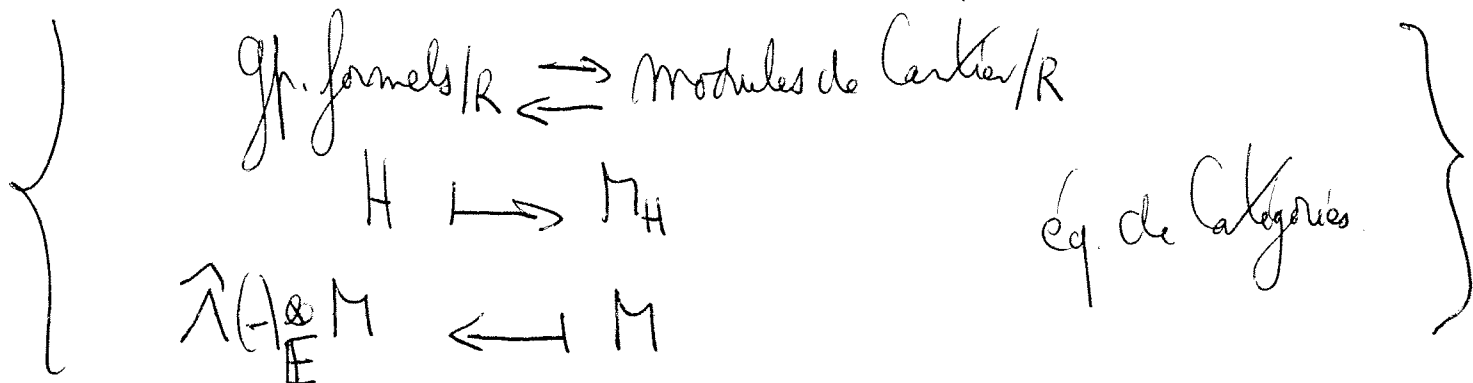 gp. formels/R ⇄ modules de Cartier/R
H ⟼ M_H
éq. de Catégories.
Λ̂(-) ⊗_E M ⟻ M